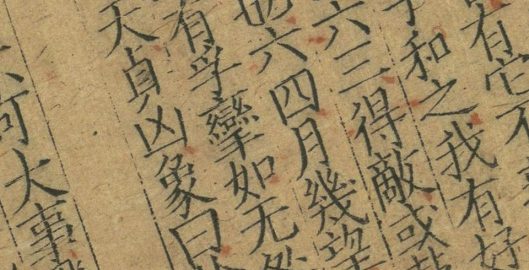 有它不
和之我有好
六三得敵或
也六四月幾望
有孚攣如无
天貞凶象曰
可大事